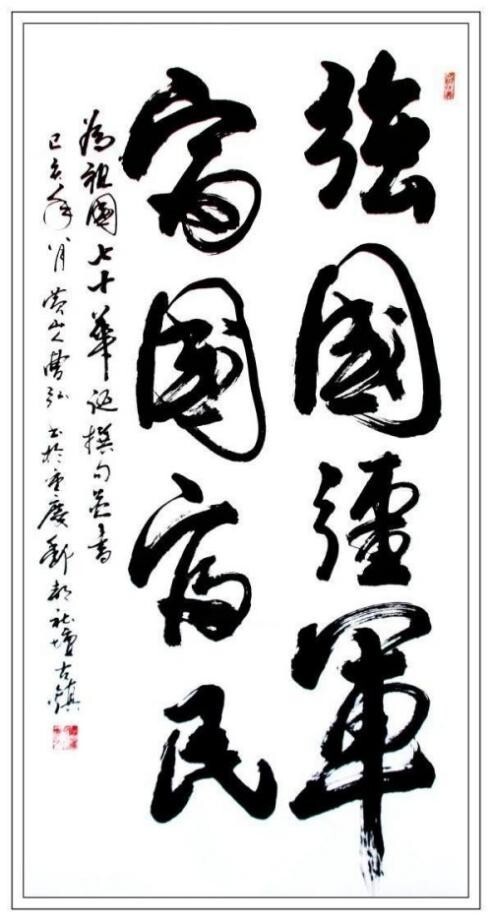 強國彊軍
富國富民
為祖國七十華誕撰句並書
己亥年八月黄曹弘書於重慶酆都社壇古鎮